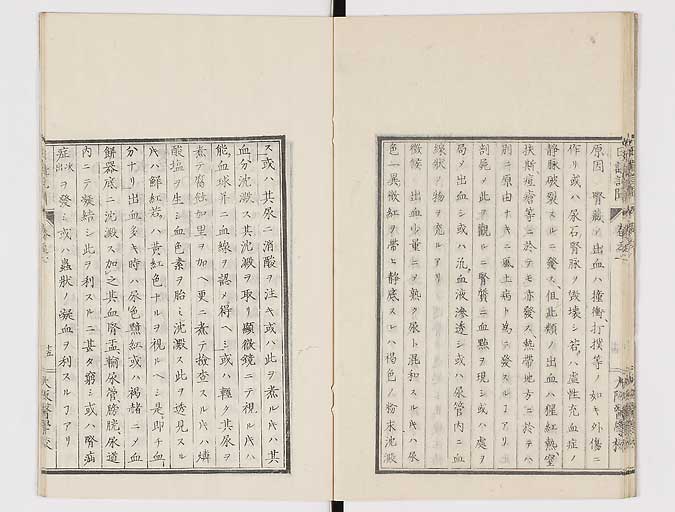 原因 腎臓ノ出血ハ撞衝、打撲等ノ如キ外傷ニ
作リ或ハ尿石腎脉ヲ毀壊シ若ハ虚性充血症ノ
静脉破裂スルニ發ス、但此類ノ出血ハ猩紅熱、窒
扶斯、痘瘡等ニ於テモ亦發ス熱帯地方ニ於テハ
別ニ原由ナキニ風土病ト為テ發スルヿアリ
剖屍ノ此ヲ觀ルニ腎質ニ血點ヲ現シ或ハ處ヲ
局メ出血シ或ハ血液滲透シ或ハ尿管内ニ血
線状ノ物ヲ充ルアリ
徴候 出血少量ニメ熟ク尿ト混和スル片ハ尿
色一異、微紅ヲ帯ヒ静底スレハ褐色ノ粉末沈澱
ス或ハ其尿ニ消酸ヲ注キ或ハ此ヲ煮ル片ハ其
血分沈澱ス其沈澱ヲ取リ顯微鏡ニテ視ル片ハ
能血球并ニ血線ヲ認メ得ヘシ或ハ輕ク其尿ヲ
煮テ腐蝕加里ヲ加ヘ更ニ煮テ檢査スル片ハ燐
酸塩ヲ生シ血色素ヲ胎ミ沈澱ス此ヲ透見スル
片ハ鮮紅若ハ黄紅色ナルヲ視ルヘシ是、即チ血
分ナリ出血多キ時ハ尿色黯紅或ハ褐赭ニメ血
餅器底ニ沈澱ス加之其血腎盂、輸尿管、膀胱、尿道
内ニテ凝結シ此ヲ利スルニ甚タ窮ミ或ハ腎疝
症ヲ發ミ或ハ蟲状ノ凝血ヲ利スルヿアリ
大阪醫學校